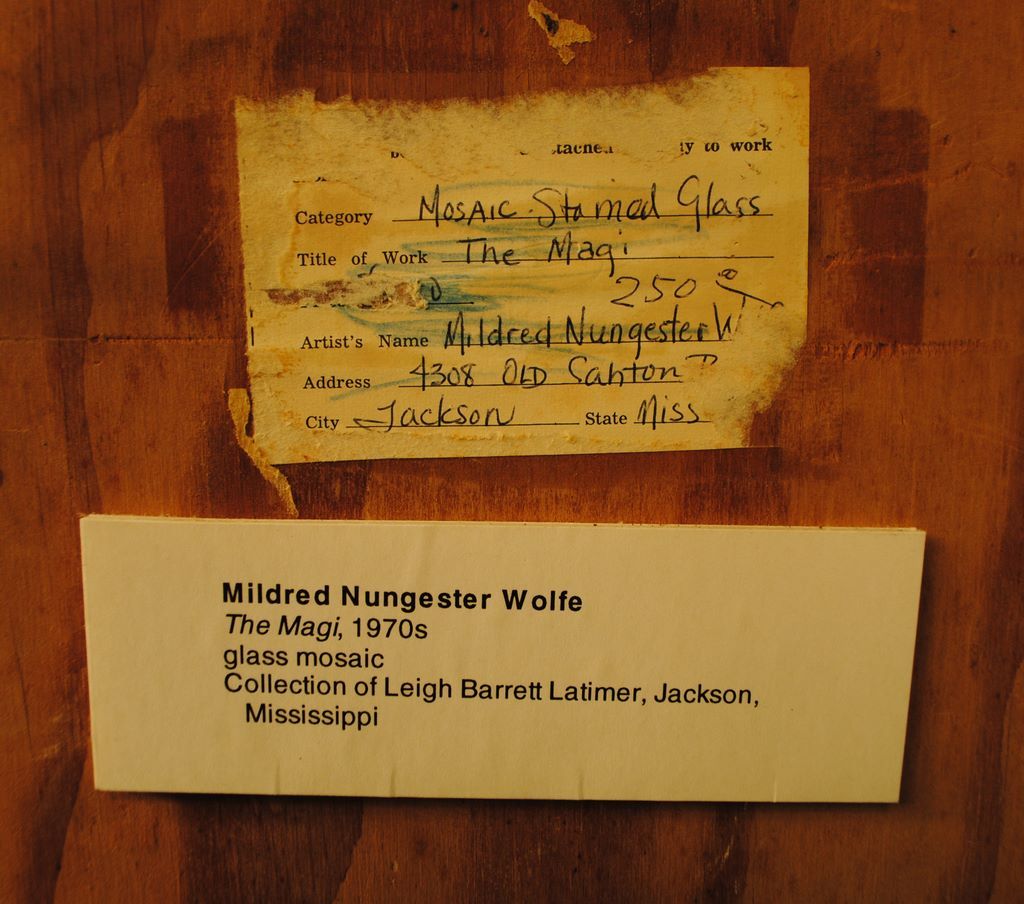 to work
Category Mosaic Stained Glass
Title of Work The Magi
250 00
Artist's Name Mildred Nungester W
Address 4308 OLD Canton
City Jackson State Miss
Mildred Nungester Wolfe
The Magi, 1970s
glass mosaic
Collection of Leigh Barrett Latimer, Jackson,
Mississippi